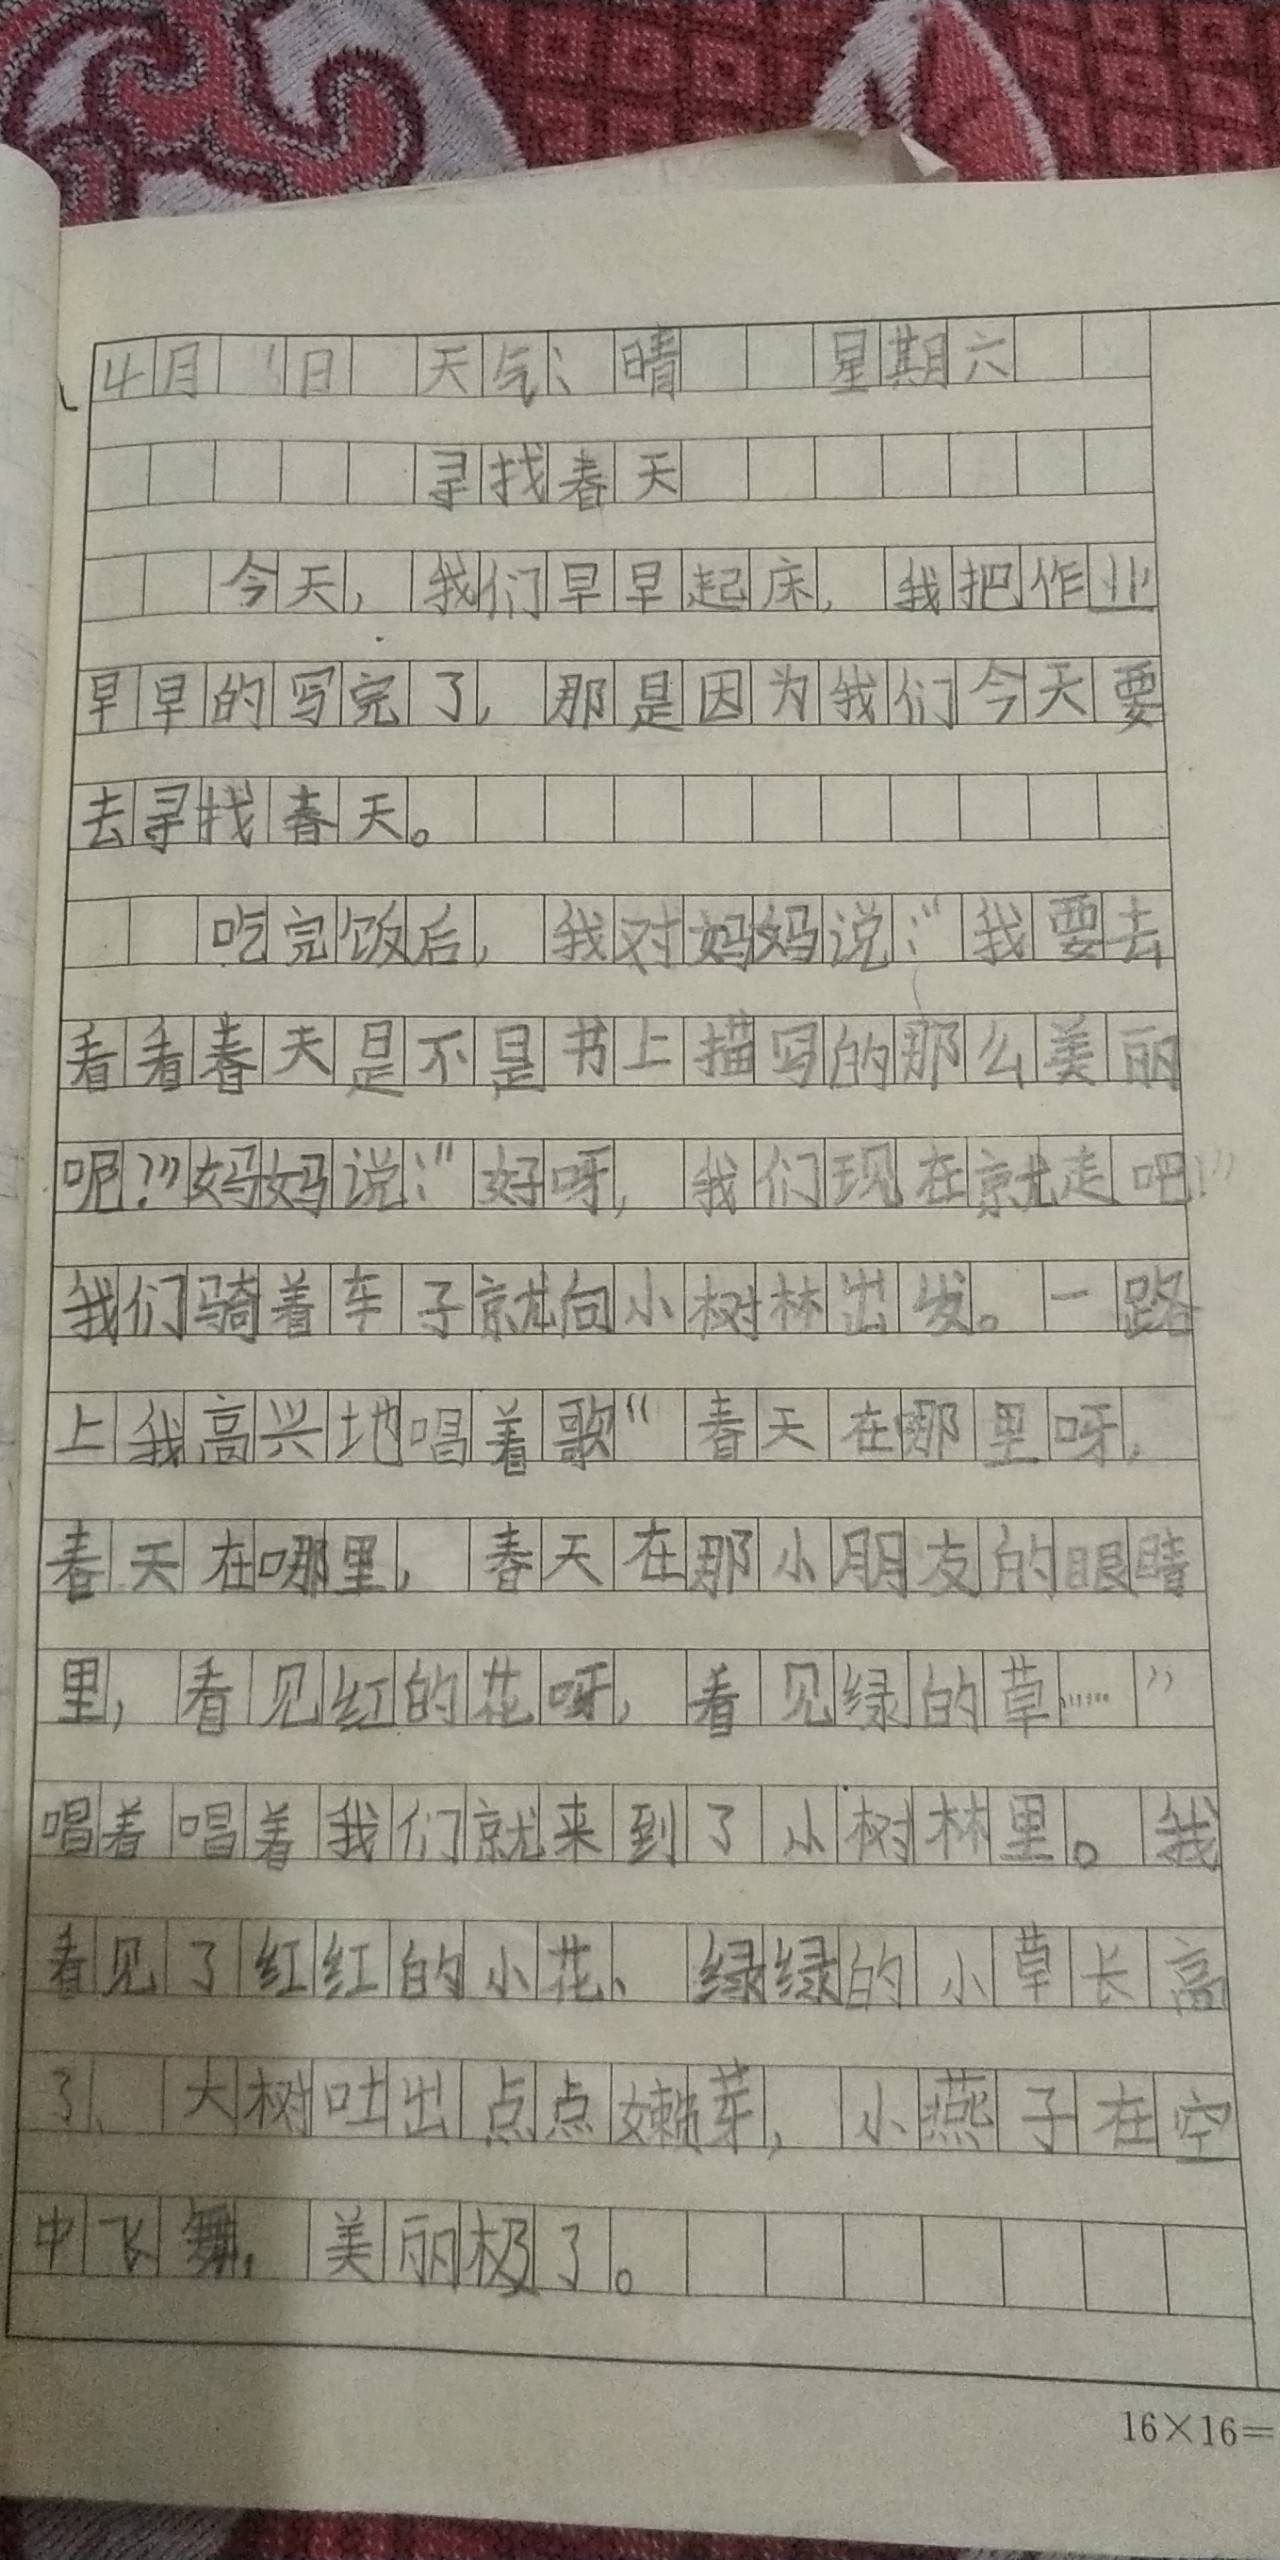 4月1日 天气：晴 星期六
寻找春天
今天，我们早早起床，我把作业
早早的写完了，那是因为我们今天要
去寻找春天。
吃完饭后，我对妈妈说：“我要去
看看春天是不是书上描写的那么美丽
呢？”妈妈说：“好呀，我们现在就走吧！”
我们骑着车子就向小树林出发。一路
上我高兴地唱着歌“春天在哪里呀，
春天在哪里，春天在那小朋友的眼睛
里，看见红的花呀，看见绿的草……”
唱着唱着我们就来到了小树林里。我
看见了红红的小花、绿绿的小草长高
了、大树吐出点点嫩芽，小燕子在空
中飞舞，美丽极了。
16×16=